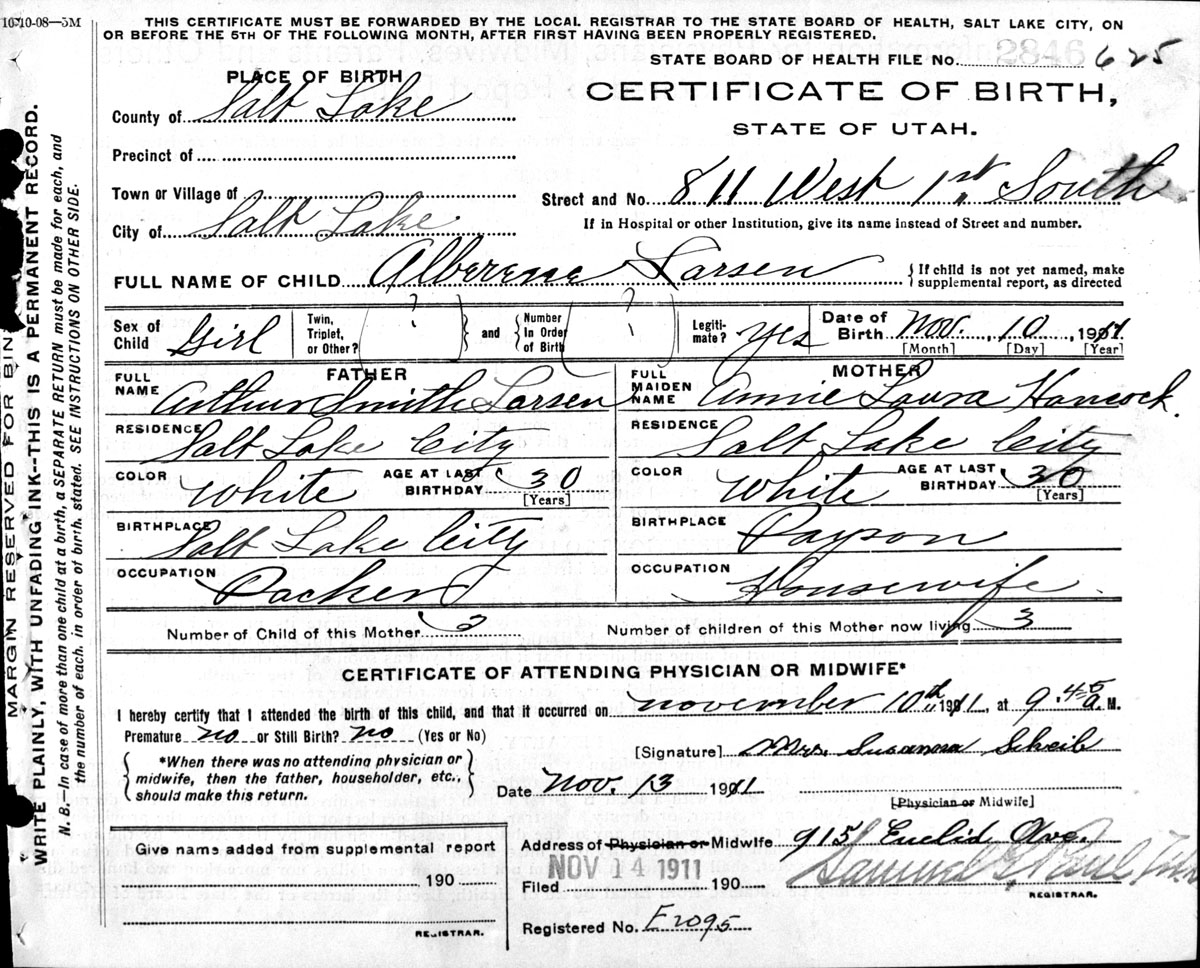 10-10-08—5M
THIS CERTIFICATE MUST BE FORWARDED BY THE LOCAL REGISTRAR TO THE STATE BOARD OF HEALTH, SALT LAKE CITY, ON
OR BEFORE THE 5TH OF THE FOLLOWING MONTH, AFTER FIRST HAVING BEEN PROPERLY REGISTERED.
STATE BOARD OF HEALTH FILE No. 2846 625
PLACE OF BIRTH
CERTIFICATE OF BIRTH,
STATE OF UTAH.
County of Salt Lake
Precinct of
Town or Village of
City of Salt Lake
Street and No. 811 West 1st South
If in Hospital or other Institution, give its name instead of Street and number.
FULL NAME OF CHILD Alberene Larsen
{If child is not yet named, make
supplemental report, as directed
Sex of Child Girl
Twin, Triplet, or Other? ?
and
Number In Order of Birth ?
Legiti-mate? yes
Date of Birth Nov. 10, 1911
[Month] [Day] [Year]
FATHER
FULL NAME Arthur Smith Larsen
RESIDENCE Salt Lake City
COLOR White AGE AT LAST BIRTHDAY 30 [Years]
BIRTHPLACE Salt Lake City
OCCUPATION Packer
MOTHER
FULL MAIDEN NAME Annie Laura Hancock.
RESIDENCE Salt Lake City
COLOR White AGE AT LAST BIRTHDAY 30 [Years]
BIRTHPLACE Payson
OCCUPATION Housewife.
Number of Child of this Mother 3
Number of children of this Mother now living 3
CERTIFICATE OF ATTENDING PHYSICIAN OR MIDWIFE*
I hereby certify that I attended the birth of this child, and that it occurred on november 10th 1911, at 9 45 a M.
Premature no or Still Birth? no (Yes or No)
{*When there was no attending physician or
midwife, then the father, householder, etc.,
should make this return.}
[Signature] Mrs. Susanna Scheib
Date Nov. 13 1911
[Physician or Midwife]
Address of Physician or Midwife 915 Euclid Ave.
Give name added from supplemental report
190
REGISTRAR.
NOV 14 1911
Filed 190
Samuel G. Paul
REGISTRAR.
Registered No. E2095
MARGIN RESERVED FOR BIN
WRITE PLAINLY, WITH UNFADING INK--THIS IS A PERMANENT RECORD.
N. B.—In case of more than one child at a birth, a SEPARATE RETURN must be made for each, and
the number of each, in order of birth, stated. SEE INSTRUCTIONS ON OTHER SIDE.